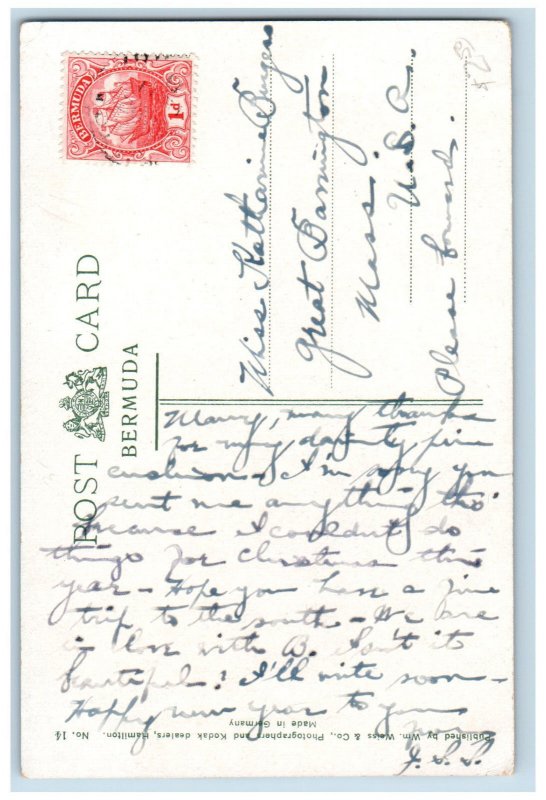 BERMUDA
1d
POST CARD
BERMUDA
Miss Katharine Burgess
Great Barrington
Mass.
U.S.A.
Please forward.
Many, many thanks
for my dainty pin
cushion - I'm sorry you
sent me anything tho'
because I couldn't do
things for Christmas this
year - Hope you have a fine
trip to the south - We are
in love with B. Isn't it
beautiful? I'll write soon -
Happy new year to you
Published by Wm. Weiss & Co., Photographers and Kodak dealers, Hamilton. No. 14
Made in Germany